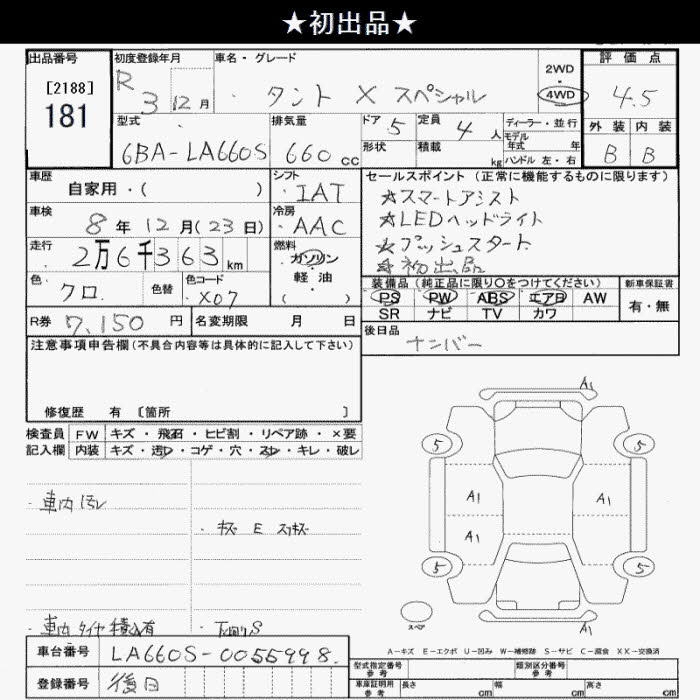 ★初出品★
出品番号
[2188]
181
初度登録年月
R 3 12 月
車名・グレード
タント X スペシャル
2WD
・
4WD
評価点
4.5
外装 内装
B B
型式
6BA-LA660S
排気量
660 cc
ドア 5
形状
定員 4 人
積載 kg
ディーラー・並行
モデル年式 年
ハンドル 左・右
車歴
自家用・( )
シフト
IAT
車検
8 年 12 月 (23 日)
冷房
AAC
走行
2万6千363 km
燃料
ガソリン
・
軽油
( )
色
クロ
色替
色コード
X07
R券 7,150 円
名変期限 月 日
セールスポイント (正常に機能するものに限ります)
★スマートアシスト
★LEDヘッドライト
★プッシュスタート
★初出品
装備品 (純正品に限り○をつけてください)
PS PW ABS エアB AW
SR ナビ TV カワ
新車保証書
有・無
後日品
ナンバー
注意事項申告欄 (不具合内容等は具体的に記入して下さい)
修復歴 有 〔箇所 〕
検査員記入欄
FW キズ・飛石・ヒビ割・リペア跡・×要
内装 キズ・汚レ・コゲ・穴・スレ・キレ・破レ
・車内 汚レ
・キズ E スリキズ
・車内 タイヤ 積込有
・下回り S
A1
5 5
A1 A1
A1
5 5
スペア
A1
A-キズ E-エクボ U-凹み W-補修跡 S-サビ C-腐食 XX-交換済
車台番号 LA660S-0055998
登録番号 後日
型式指定番号 参考
類別区分番号 参考
車庫証明用 参考
長さ cm 幅 cm 高さ cm